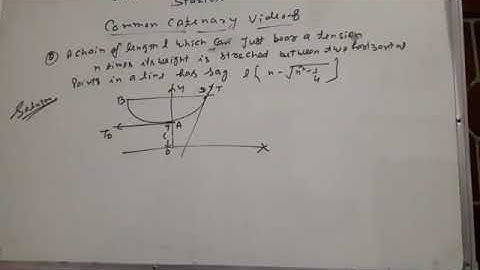 Common Catenary Video-8
⑧ A chain of length l which can just bear a tension
n times its weight is streched between two horizontal
points in a line has sag l [n - √n²-1/4]
Solution
B
Y
T
To
A
C
O
X